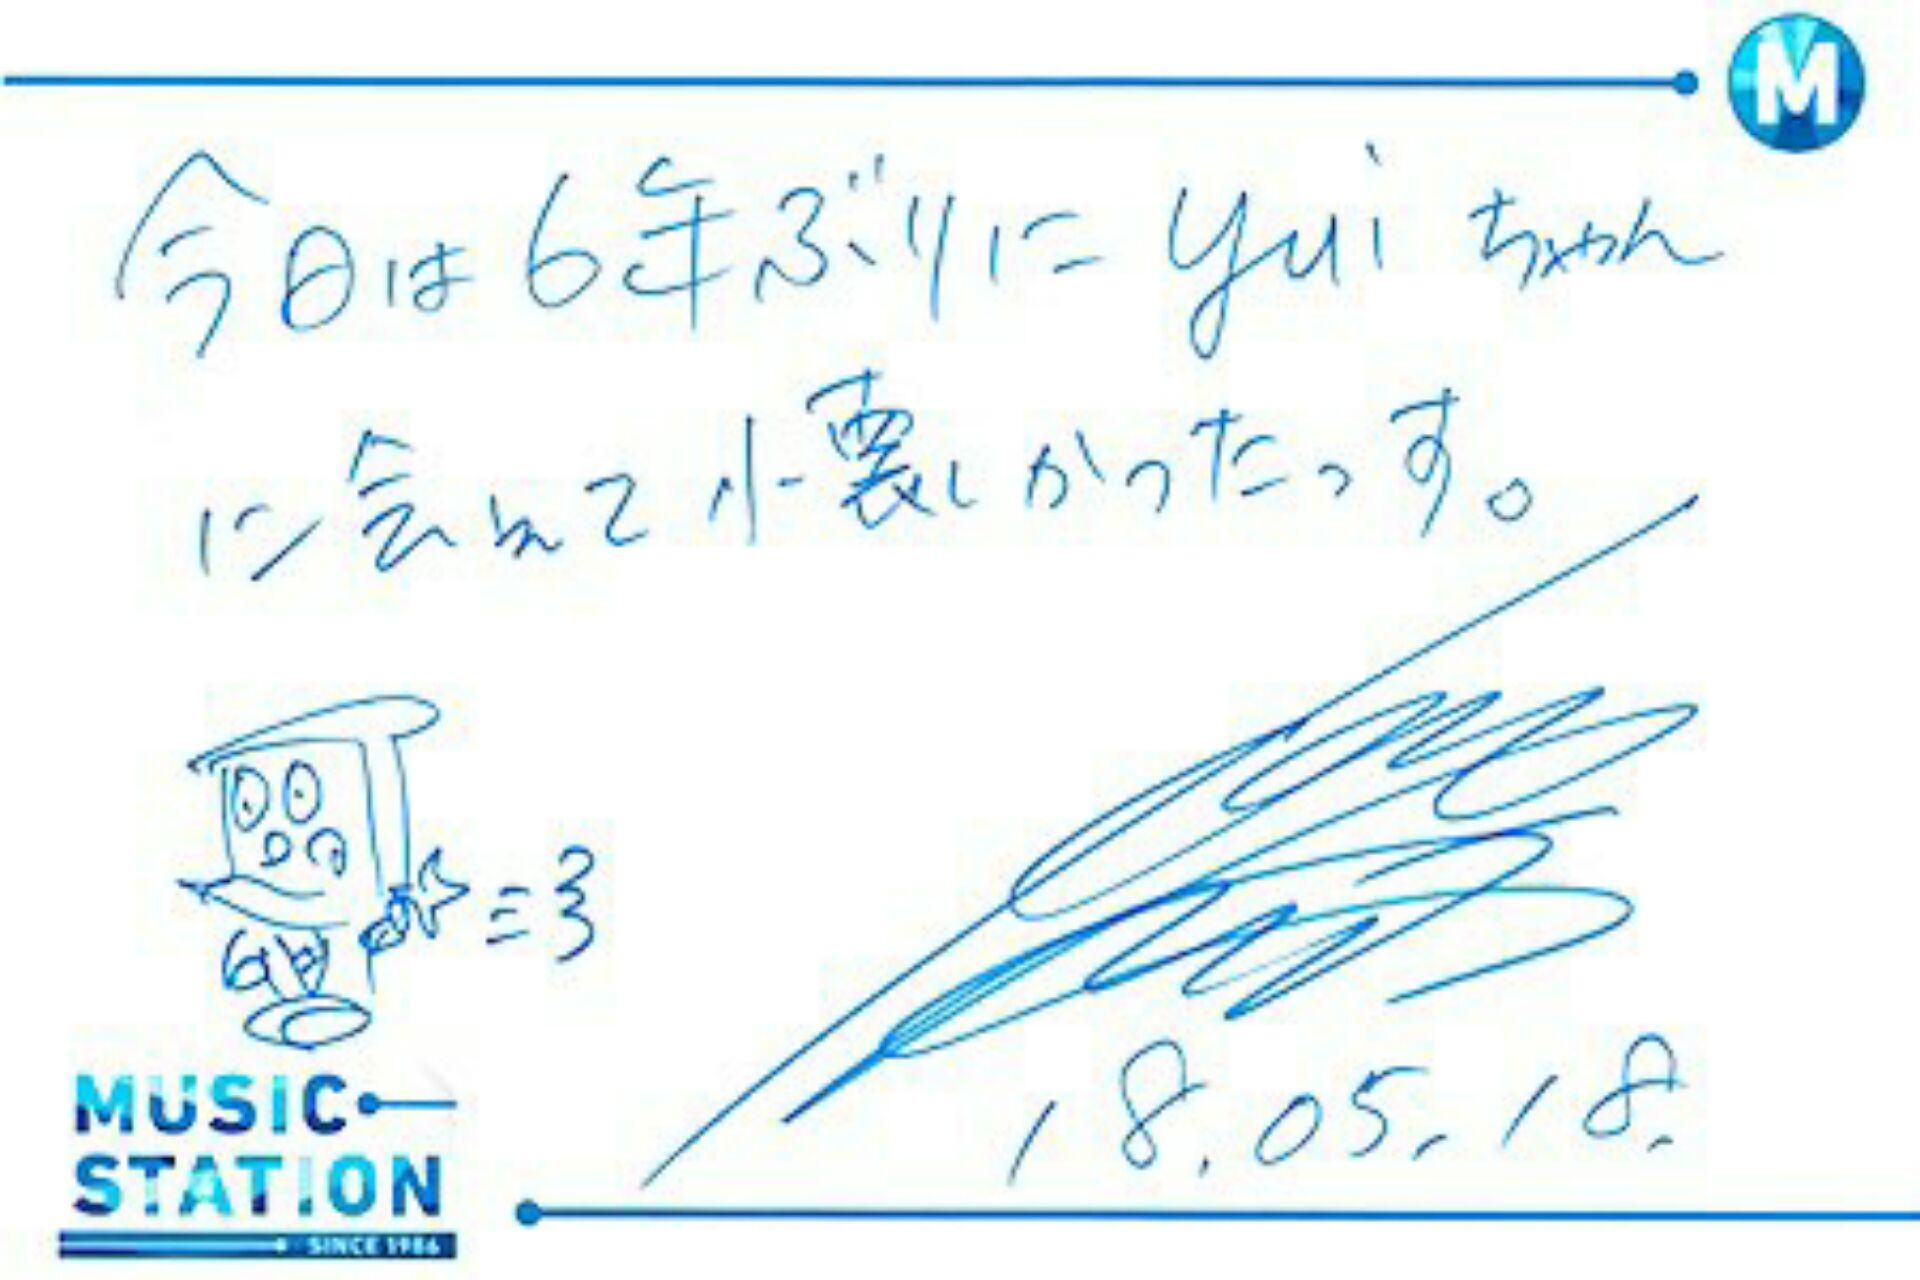 M
今日は6年ぶりにyuiちゃん
に会えて小懐しかったっす。
18.05.18.
MUSIC
STATION
SINCE 1986